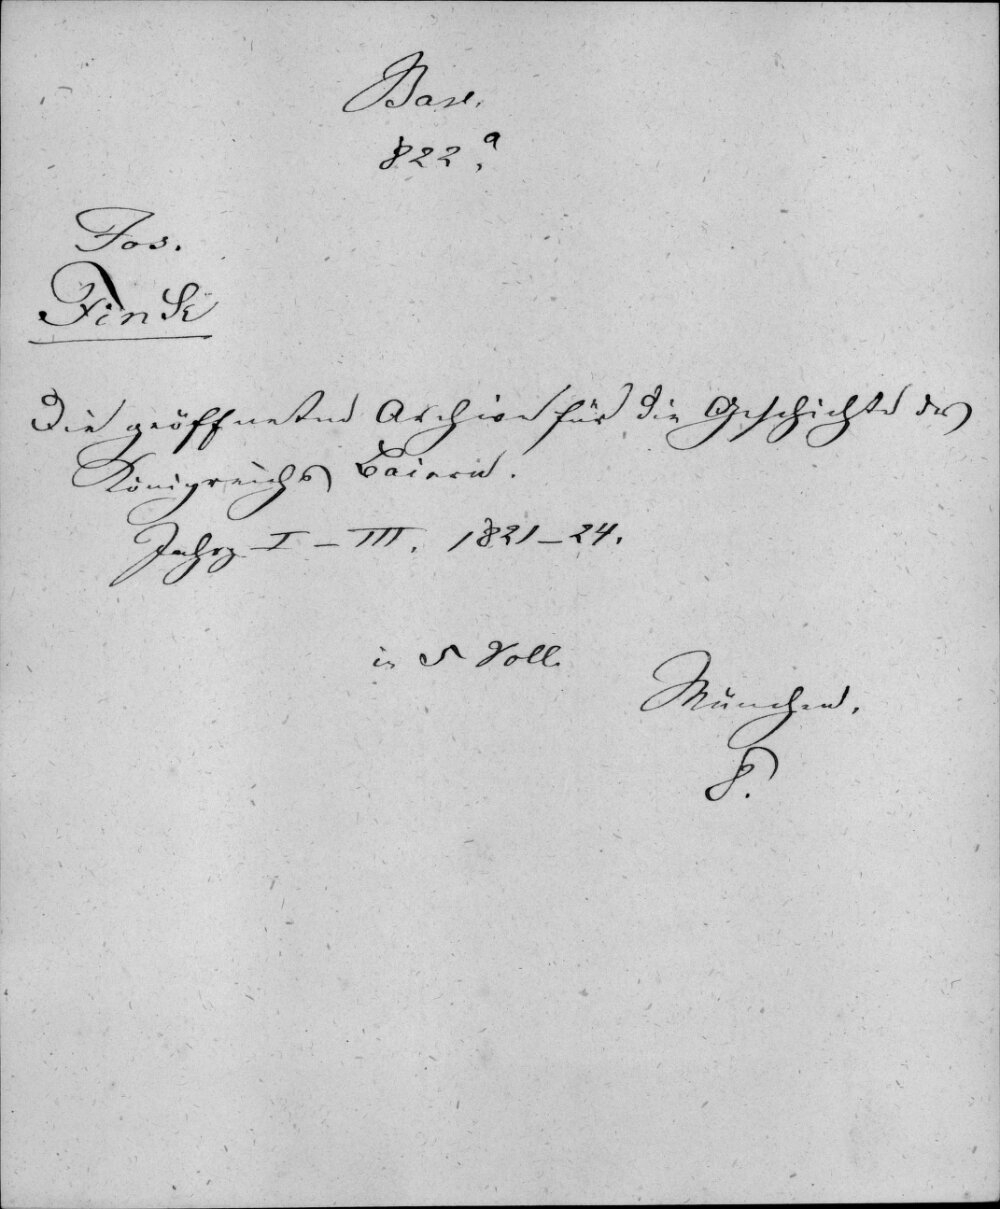 Bavar.
822.ᵃ
Jos.
Fink
Die geöffneten Archive für die Geschichte des
Königreichs Baiern.
Jahrg I – III. 1821–24.
in 5 Voll.
München.
8.